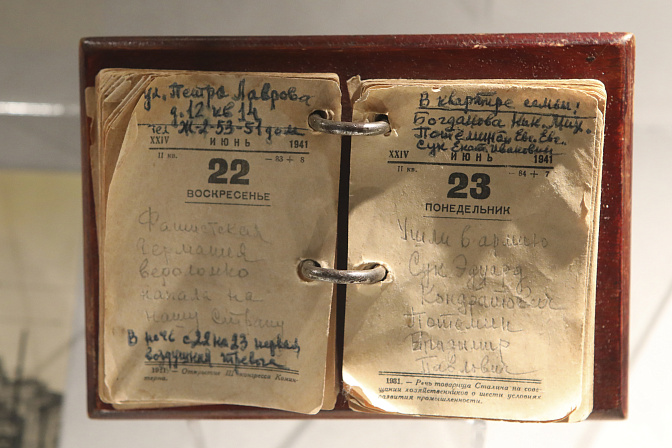 ул. Петра Лаврова
д. 12 кв 14
тел Ж-2-53-51 дома
XXIV ИЮНЬ 1941
II кв. 83 + 8
22
ВОСКРЕСЕНЬЕ
Фашистская
Германия
вероломно
напала на
нашу страну
В ночь с 22 на 23 первая
воздушная тревога
Открытие III
В квартире семьи:
Богданова Ник. Мих.
Потёминой Евг. Евг.
Сук Екат. Ивановны
XXIV ИЮНЬ 1941
II кв. 84 + 7
23
ПОНЕДЕЛЬНИК
Ушли в армию
Сук Эдуард
Кондратович
Потёмин
Владимир
Павлович
1931. — Речь товарища Сталина на сове-
щании хозяйственников о шести условиях
развития промышленности.